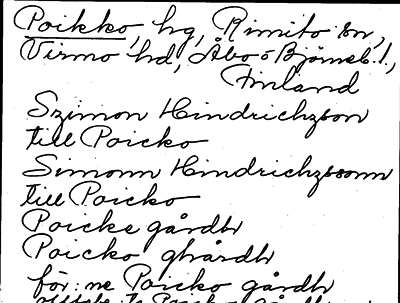 Poikko, hg, Rimito sn,
Virmo hd, Åbo o Björneb. l.,
Finland
Szimon Hindrichzson
till Poicko
Simonn Hindrichzssonn
till Poicko
Poicke gårdh
Poicko ghårdh
för: ne Poicko gårdh